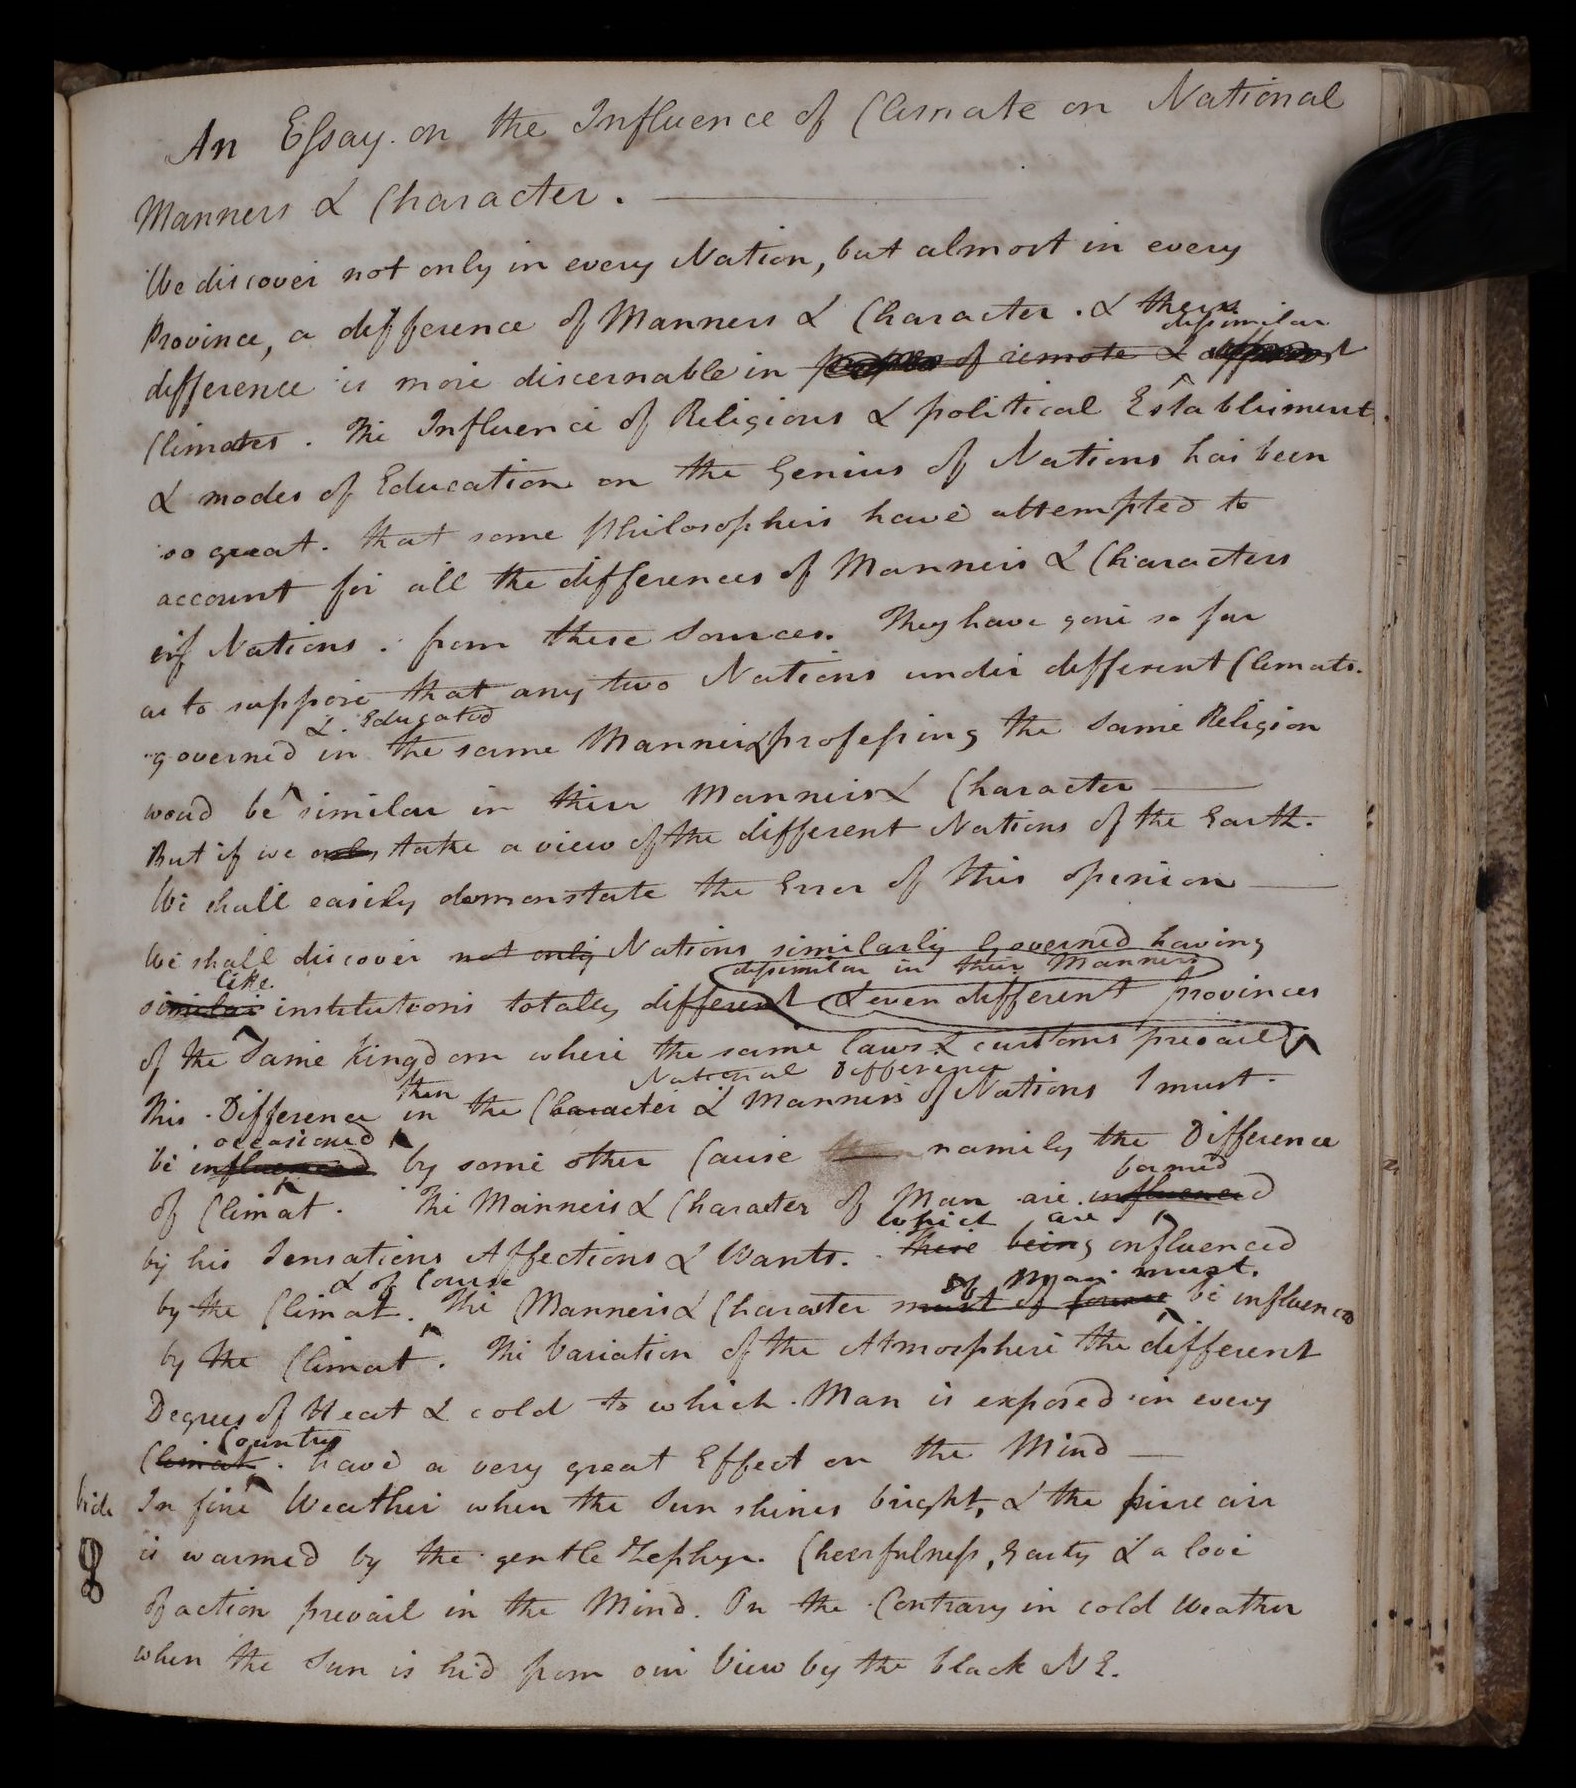 An Essay on the Influence of Climate on National
Manners & Character.
We discover not only in every Nation, but almost in every
Province, a difference of Manners & Character. &
dissimilar
difference is more discernable in of remote &
Climates. The Influence of Religious & political Establisment
& modes of Education on the Genius of Nations has been
so great. that some Philosophers have attempted to
account for all the differences of Manners & Characters
of Nations. from these Sources. They have gone so far
as to suppose that any two Nations under different Climats.
& Educated
governed in the same Manner & professing the same Religion
woud be similar in their Manners & Character
But if we only take a view of the different Nations of the Earth.
We shall easily demonstate the Error of this opinion
We shall discover not only Nations similarly Governed having
dissimilar in their Manners
like
similar institutions totally different & even different provinces
of the Same Kingdom where the same laws & customs prevail
then National Difference
This Difference in the Character & Manners of Nations must
occasioned
be influenced by some other Cause namely the Difference
formed
of Climat. The Manners & Character of Man are influenced
which are
by his Sensations Affections & Wants. these being influenced
& of Course of Man must.
by the Climat. The Manners & Character must of Course be influenced
by the Climat. The Variation of the Atmosphere the different
Degrees of Heat & cold to which Man is exposed in every
Country
Climat. have a very great Effect on the Mind
Vide In fine Weather when the Sun shines bright, & the pure air
is warmed by the gentle Zephyr. Cheerfulness, Gaity & a love
of action prevail in the Mind. On the Contrary in cold Weather
when the Sun is hid from our View by the black N E.